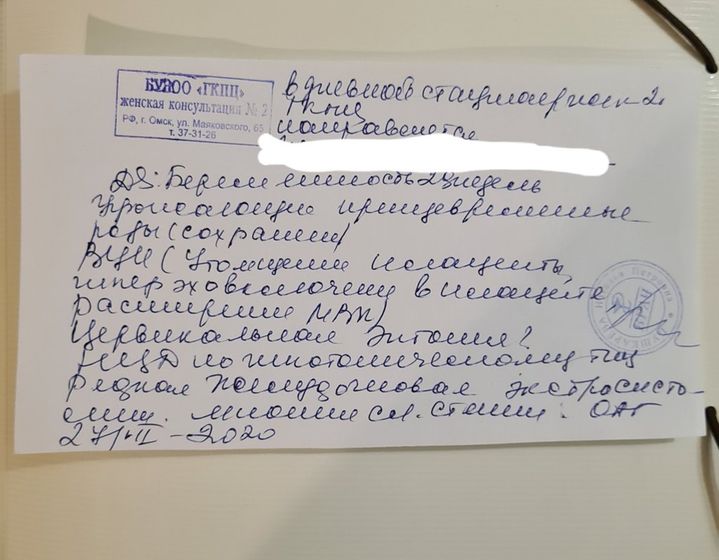 БУЗОО «ГКПЦ»
женская консультация № 2
РФ, г. Омск, ул. Маяковского, 65
т. 37-31-26
в дневной стационар
направляется
Ds: Беременность недель
Угрожающие преждевременные
роды (сохранен)
ВЦИ (Утолщение плаценты,
гиперэховключен в плаценте
расширение МВП)
Цервикальная эктопия?
НЦД по гипотоническому типу
Редкая желудочковая экстросисто-
лия. миопия сл. степени. ОАГ
2020